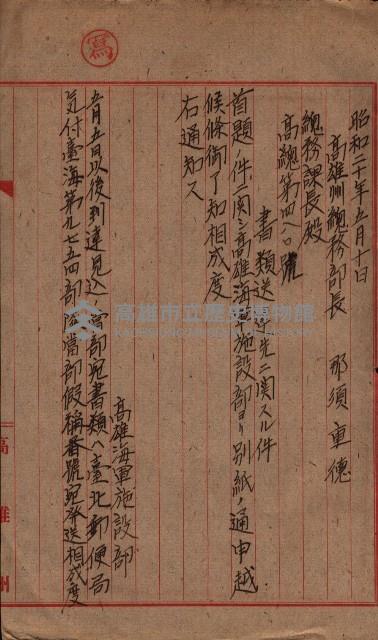 寫
昭和二十年五月十日
高雄州總務部長 那須重德
總務課長殿
高總第四八〇號
書類送達先ニ関スル件
首題ノ件ニ関シ高雄海軍施設部ヨリ別紙ノ通申越
候條御了知相成度
右通知ス
高雄海軍施設部
五月五日以後到達見込ノ當部宛書類ハ臺北郵便局
気付臺海第九七五四部隊當部假稱番號宛発送相成度
高雄州
高雄市立歷史博物館